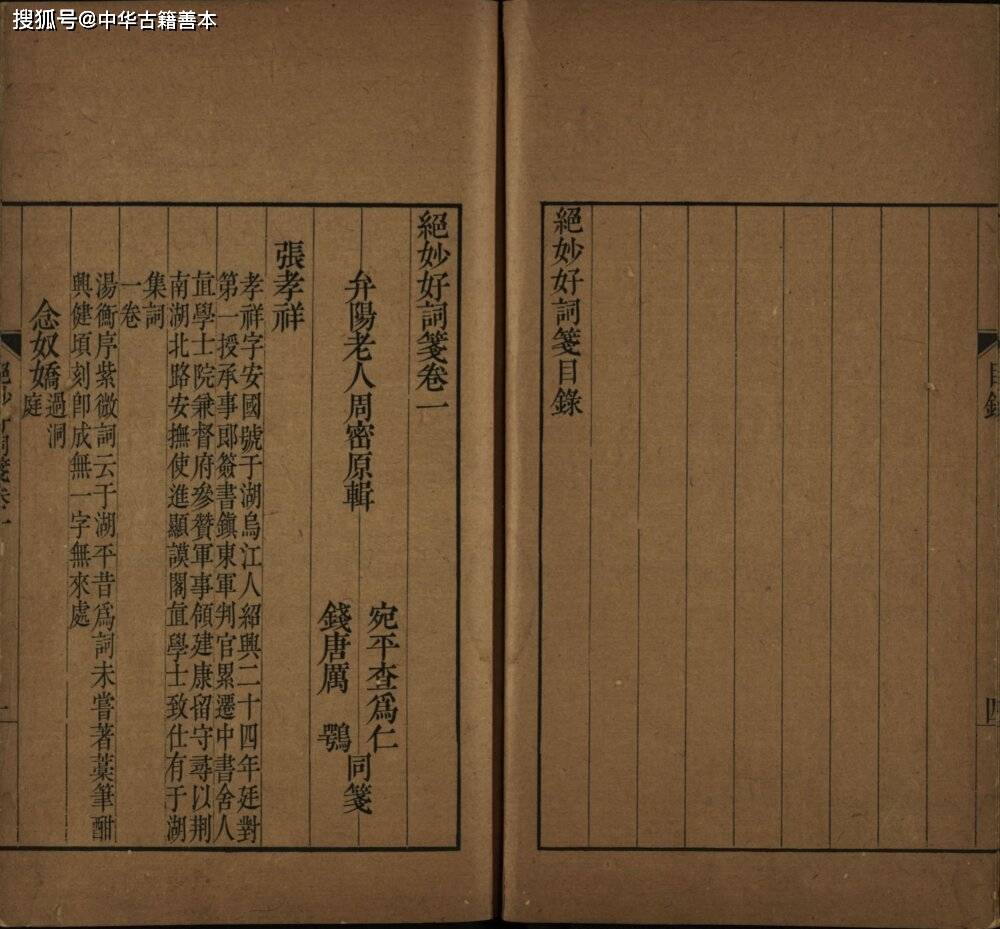 搜狐号@中华古籍善本
絕妙好詞箋目錄
目錄
四
絕妙好詞箋卷一
弁陽老人周密原輯
宛平查爲仁
錢唐厲鶚
同箋
張孝祥
孝祥字安國號于湖烏江人紹興二十四年廷對
第一授承事郎簽書鎭東軍判官累遷中書舍人
直學士院兼督府參贊軍事領建康留守尋以荆
南湖北路安撫使進顯謨閣直學士致仕有于湖
集詞
一卷
湯衡序紫微詞云于湖平昔爲詞未嘗著藁筆酣
興健頃刻卽成無一字無來處
念奴嬌過洞
庭
絕妙好詞箋卷一
一